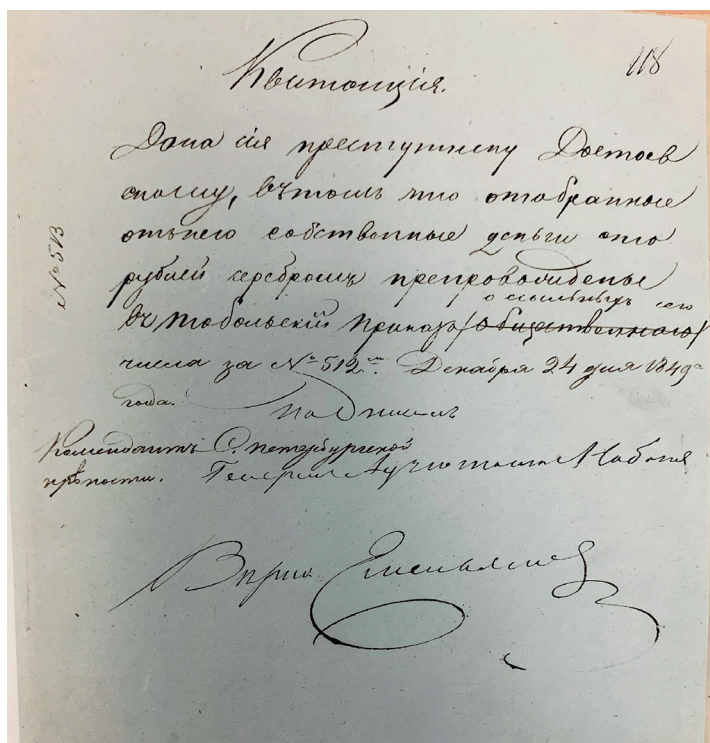 118
Квитанція.
Дана сія преступнику Достоев
скому, въ томъ что отобранные
отъ него собственные деньги сто
рублей серебромъ препровождены
о ссыльныхъ сего
въ Тобольскій Приказъ (общественнаго)
числа за № 512м. Декабря 24 дня 1849го
года.
№ 513
подписалъ
Комендантъ С. петербургской
крѣпости. Генералъ Адъютантъ Набоковъ
Вѣрно